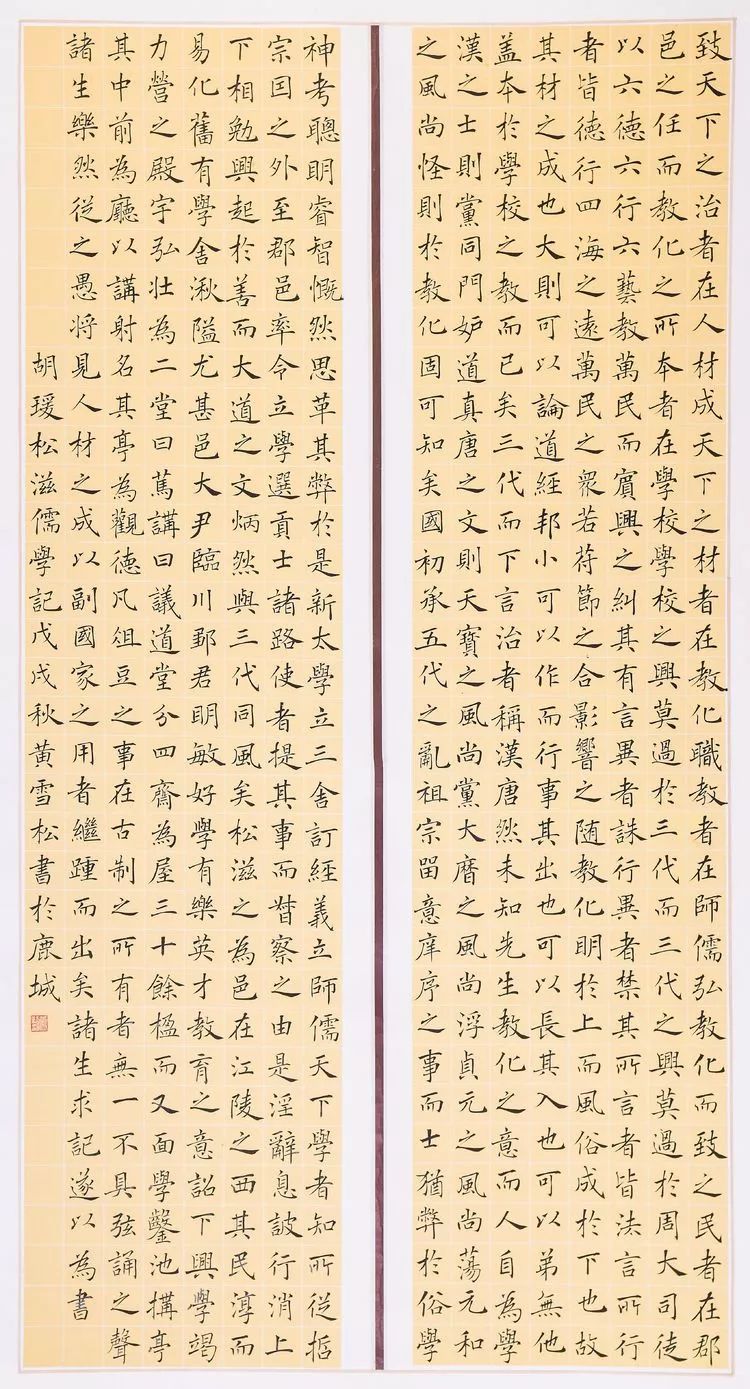 致天下之治者在人材成天下之材者在教化職教者在師儒弘教化而致之民者在郡
邑之任而教化之所本者在學校學校之興莫過於三代而三代之興莫過於周大司徒
以六德六行六藝教萬民而賓興之糾其有言異者誅行異者禁其所言者皆法言所行
者皆德行四海之遠萬民之衆若苻節之合影響之随教化明於上而風俗成於下也故
其材之成也大則可以論道經邦小可以作而行事其出也可以長其入也可以弟無他
盖本於學校之教而已矣三代而下言治者稱漢唐然未知先生教化之意而人自為學
漢之士則黨同門妒道真唐之文則天寶之風尚黨大曆之風尚浮貞元之風尚蕩元和
之風尚怪則於教化固可知矣國初承五代之亂祖宗畱意庠序之事而士猶弊於俗學
神考聰明睿智慨然思革其弊於是新太學立三舍訂經義立師儒天下學者知所從悊
宗囯之外至郡邑率令立學選貢士諸路使者提其事而督察之由是淫辭息詖行消上
下相勉興起於善而大道之文炳然與三代同風矣松滋之為邑在江陵之西其民淳而
易化舊有學舍湫隘尤甚邑大尹臨川君明敏好學有樂英才教育之意詔下興學竭
力營之殿宇弘壮為二堂曰篤講曰議道堂分四齋為屋三十餘楹而又面學鑿池構亭
其中前為廳以講射名其亭為觀德凡俎豆之事在古制之所有者無一不具弦誦之聲
諸生樂然從之愚將見人材之成以副國家之用者繼踵而出矣諸生求記遂以為書
胡瑗松滋儒學記戊戌秋黄雪松書於鹿城